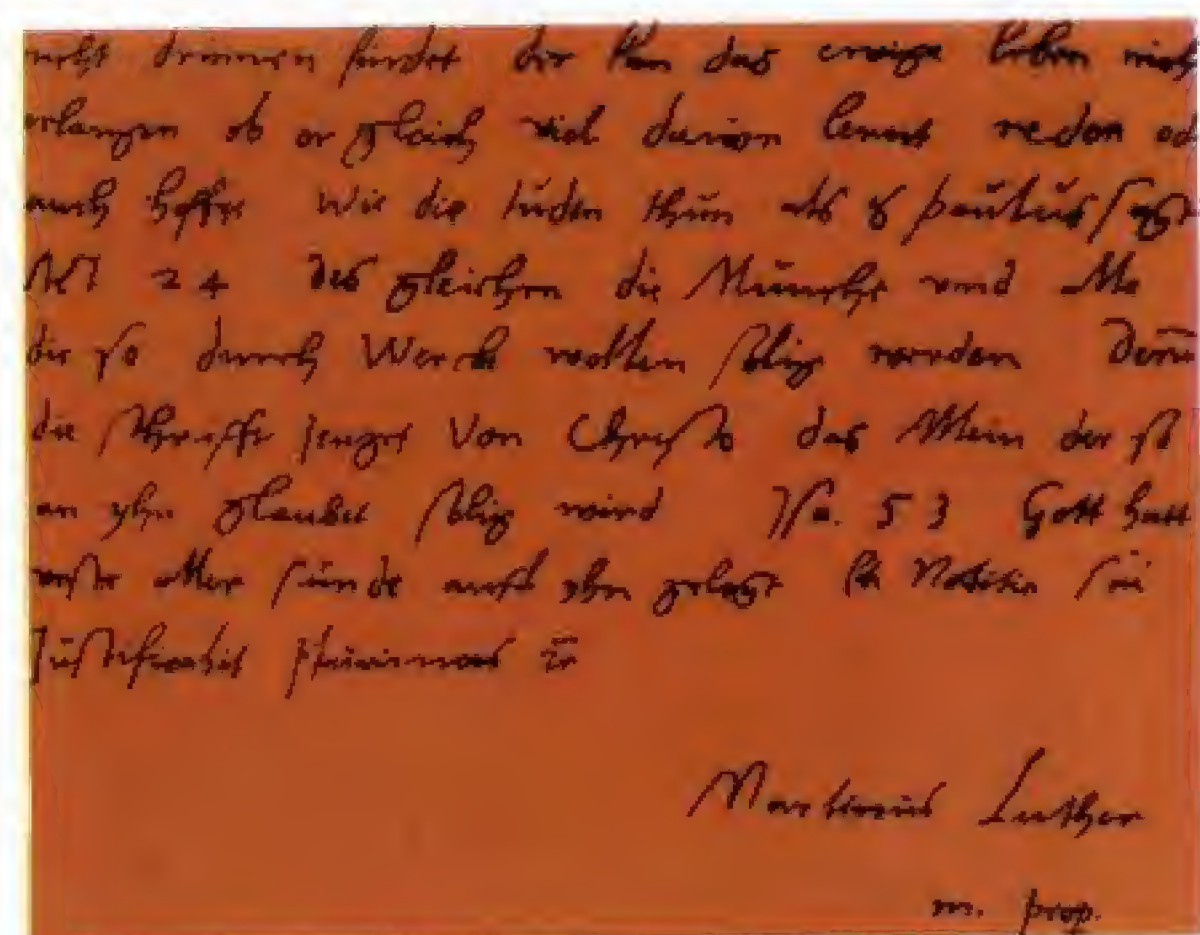 nicht drinnen findet der kan das ewige leben nich
erlangen ob er gleich viel davon leret reden od
auch hoffet Wie die Juden thun als S paulus sagt
Act 24 des gleichen die Münche und Alle
die so durch Werck wollen selig werden Denn
die schrifft zeuget Von Christo das Allein der so
an yhn glaubet selig wird Jsa. 53 Gott hatt
unser aller sunde auff yhn gelegt Et Noticia sui
Justificabit plurimos
Martinus Luther
m. prop.